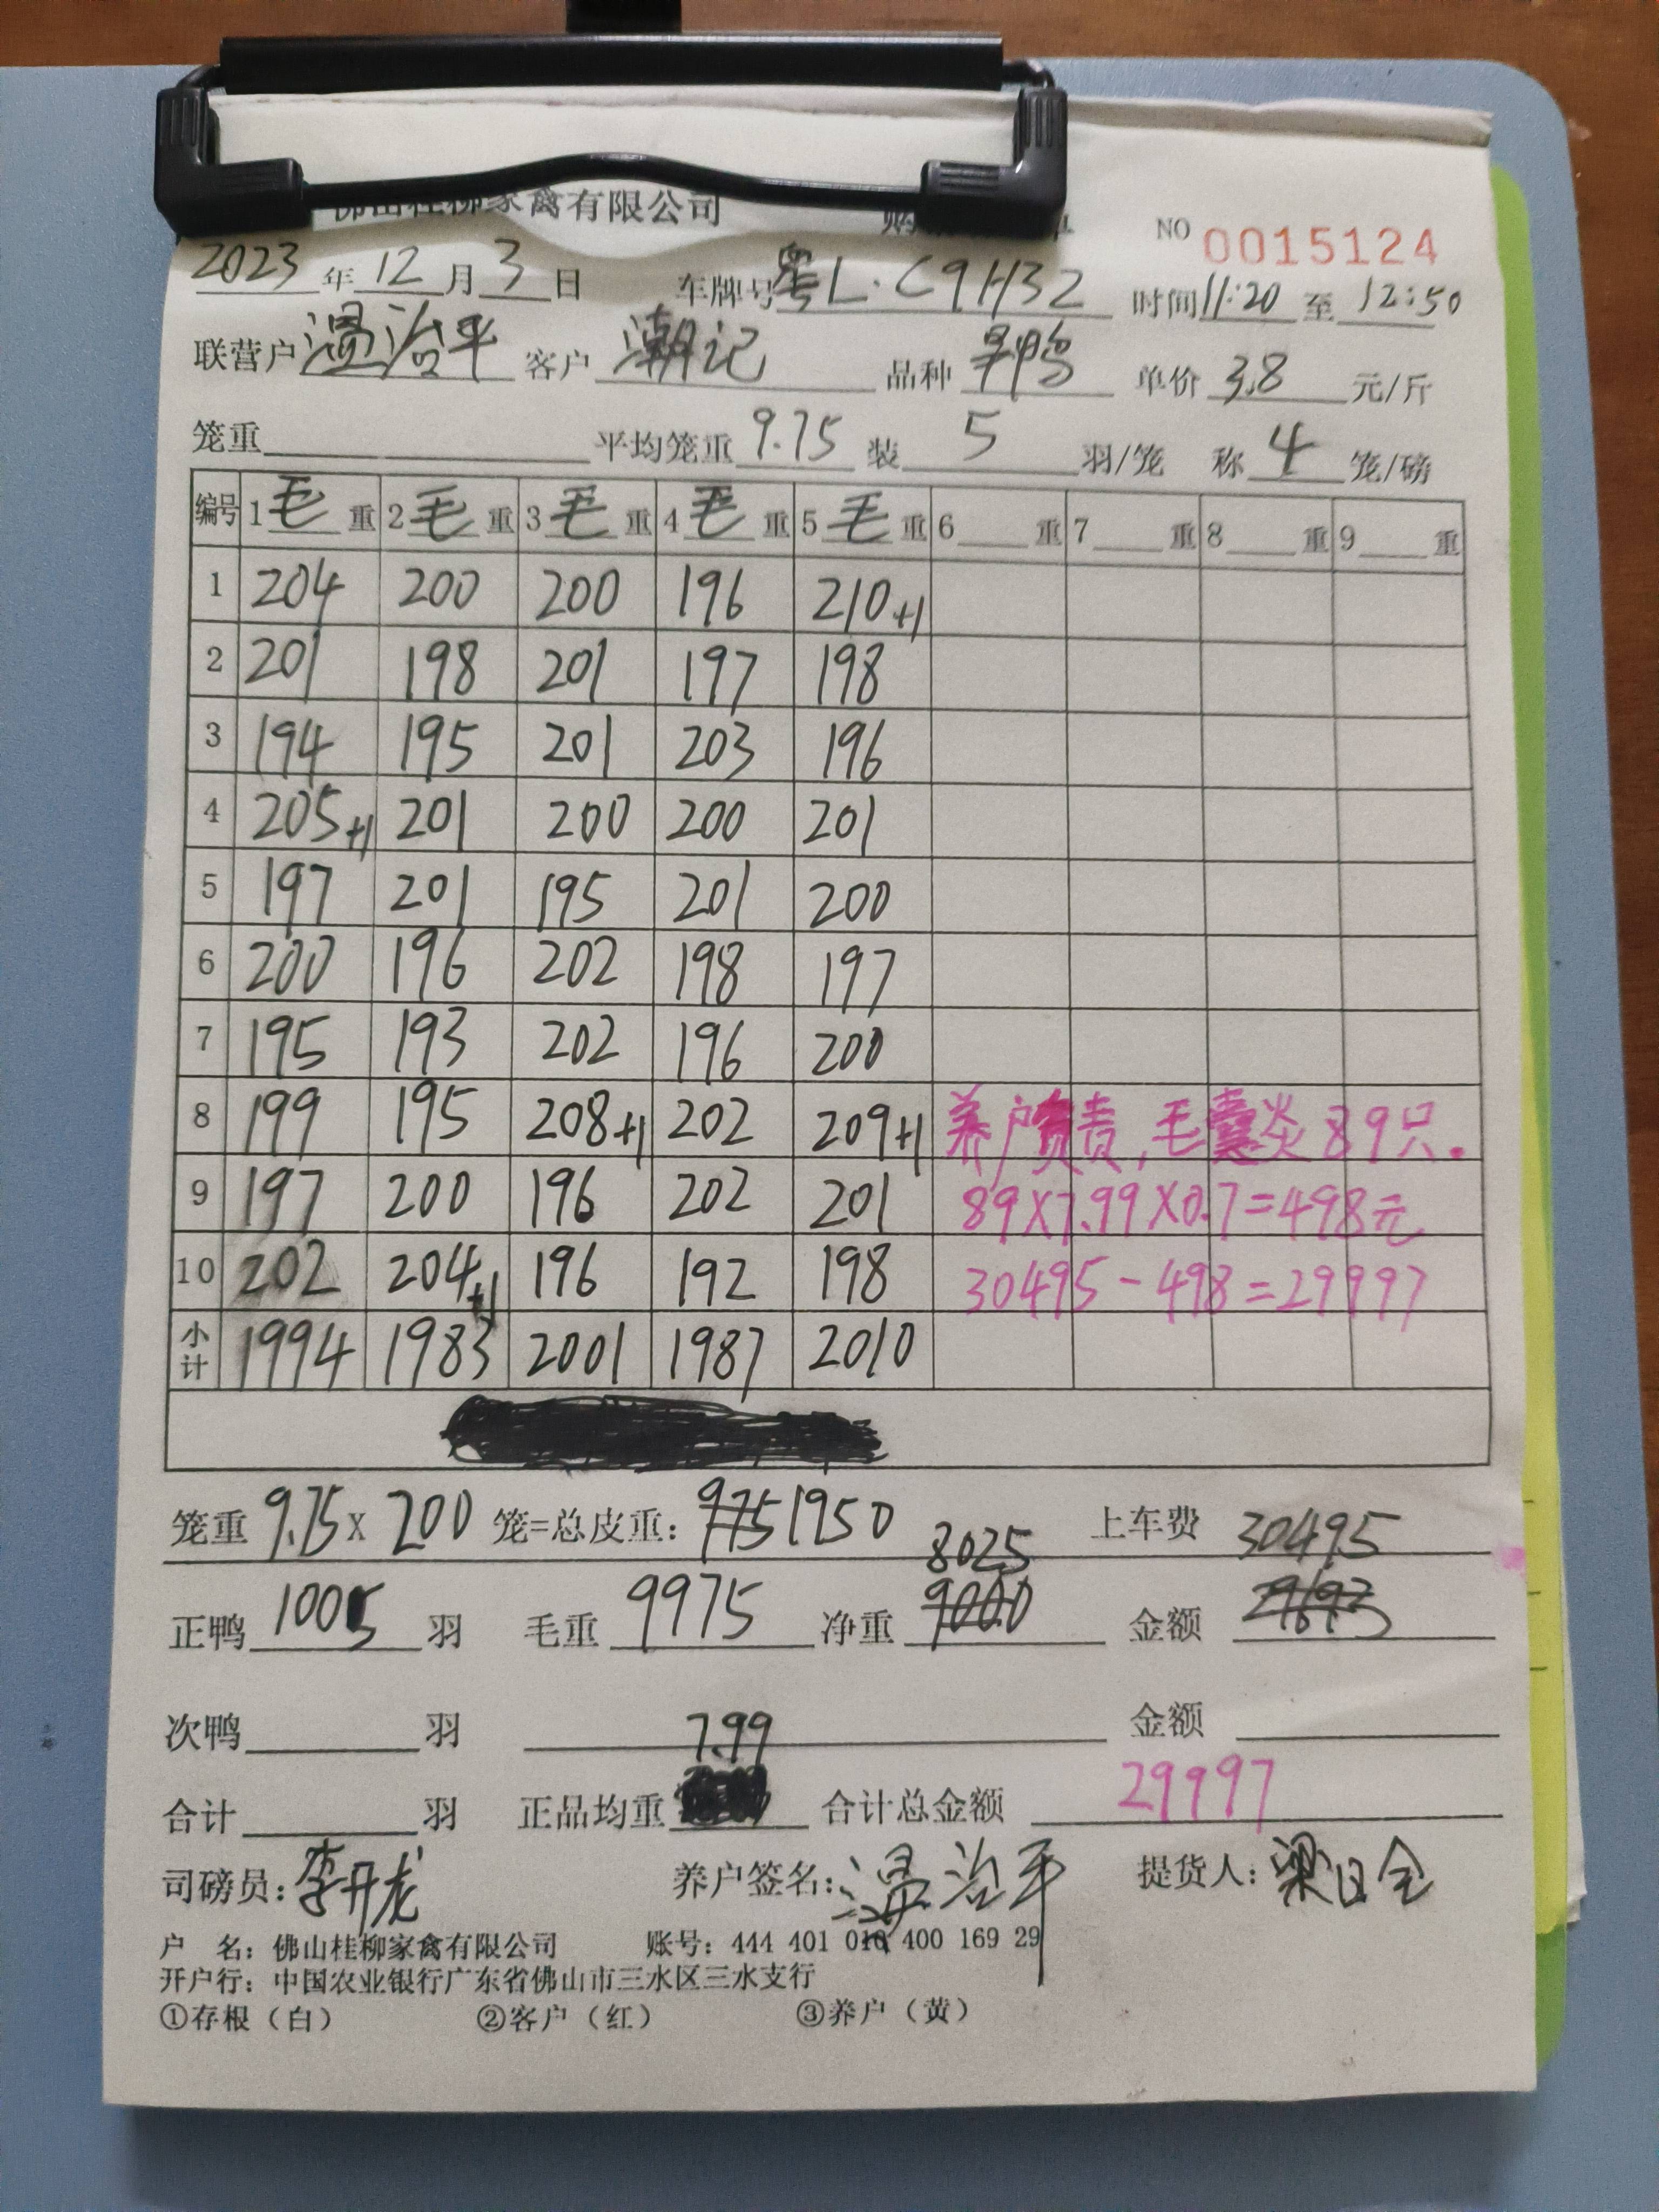 佛山桂柳家禽有限公司 NO 0015124
2023年12月3日 车牌号粤L·C9H32 时间11:20至12:50
联营户温治平 客户潮记 品种 单价3.8元/斤
笼重 平均笼重9.75 装5羽/笼 称4笼/磅
编号 1毛重 2毛重 3毛重 4毛重 5毛重 6重 7重 8重 9重
1 204 200 200 196 210+1
2 201 198 201 197 198
3 194 195 201 203 196
4 205+1 201 200 200 201
5 197 201 195 201 200
6 200 196 202 198 197
7 195 193 202 196 200
8 199 195 208+1 202 209+1 养户负责,毛囊炎89只.
9 197 200 196 202 201 89X7.99X0.7=498元
10 202 204+1 196 192 198 30495-498=29997
小计 1994 1983 2001 1987 2010
笼重9.75X200笼=总皮重:975 1950 上车费
8025 30495
正鸭1005羽 毛重9975 净重9000 金额
次鸭羽 金额
7.99
合计羽 正品均重 合计总金额 29997
司磅员:李丹龙 养户签名:温治平 提货人:梁日全
户 名:佛山桂柳家禽有限公司 账号:444 401 010 400 169 29
开户行:中国农业银行广东省佛山市三水区三水支行
①存根(白) ②客户(红) ③养户(黄)